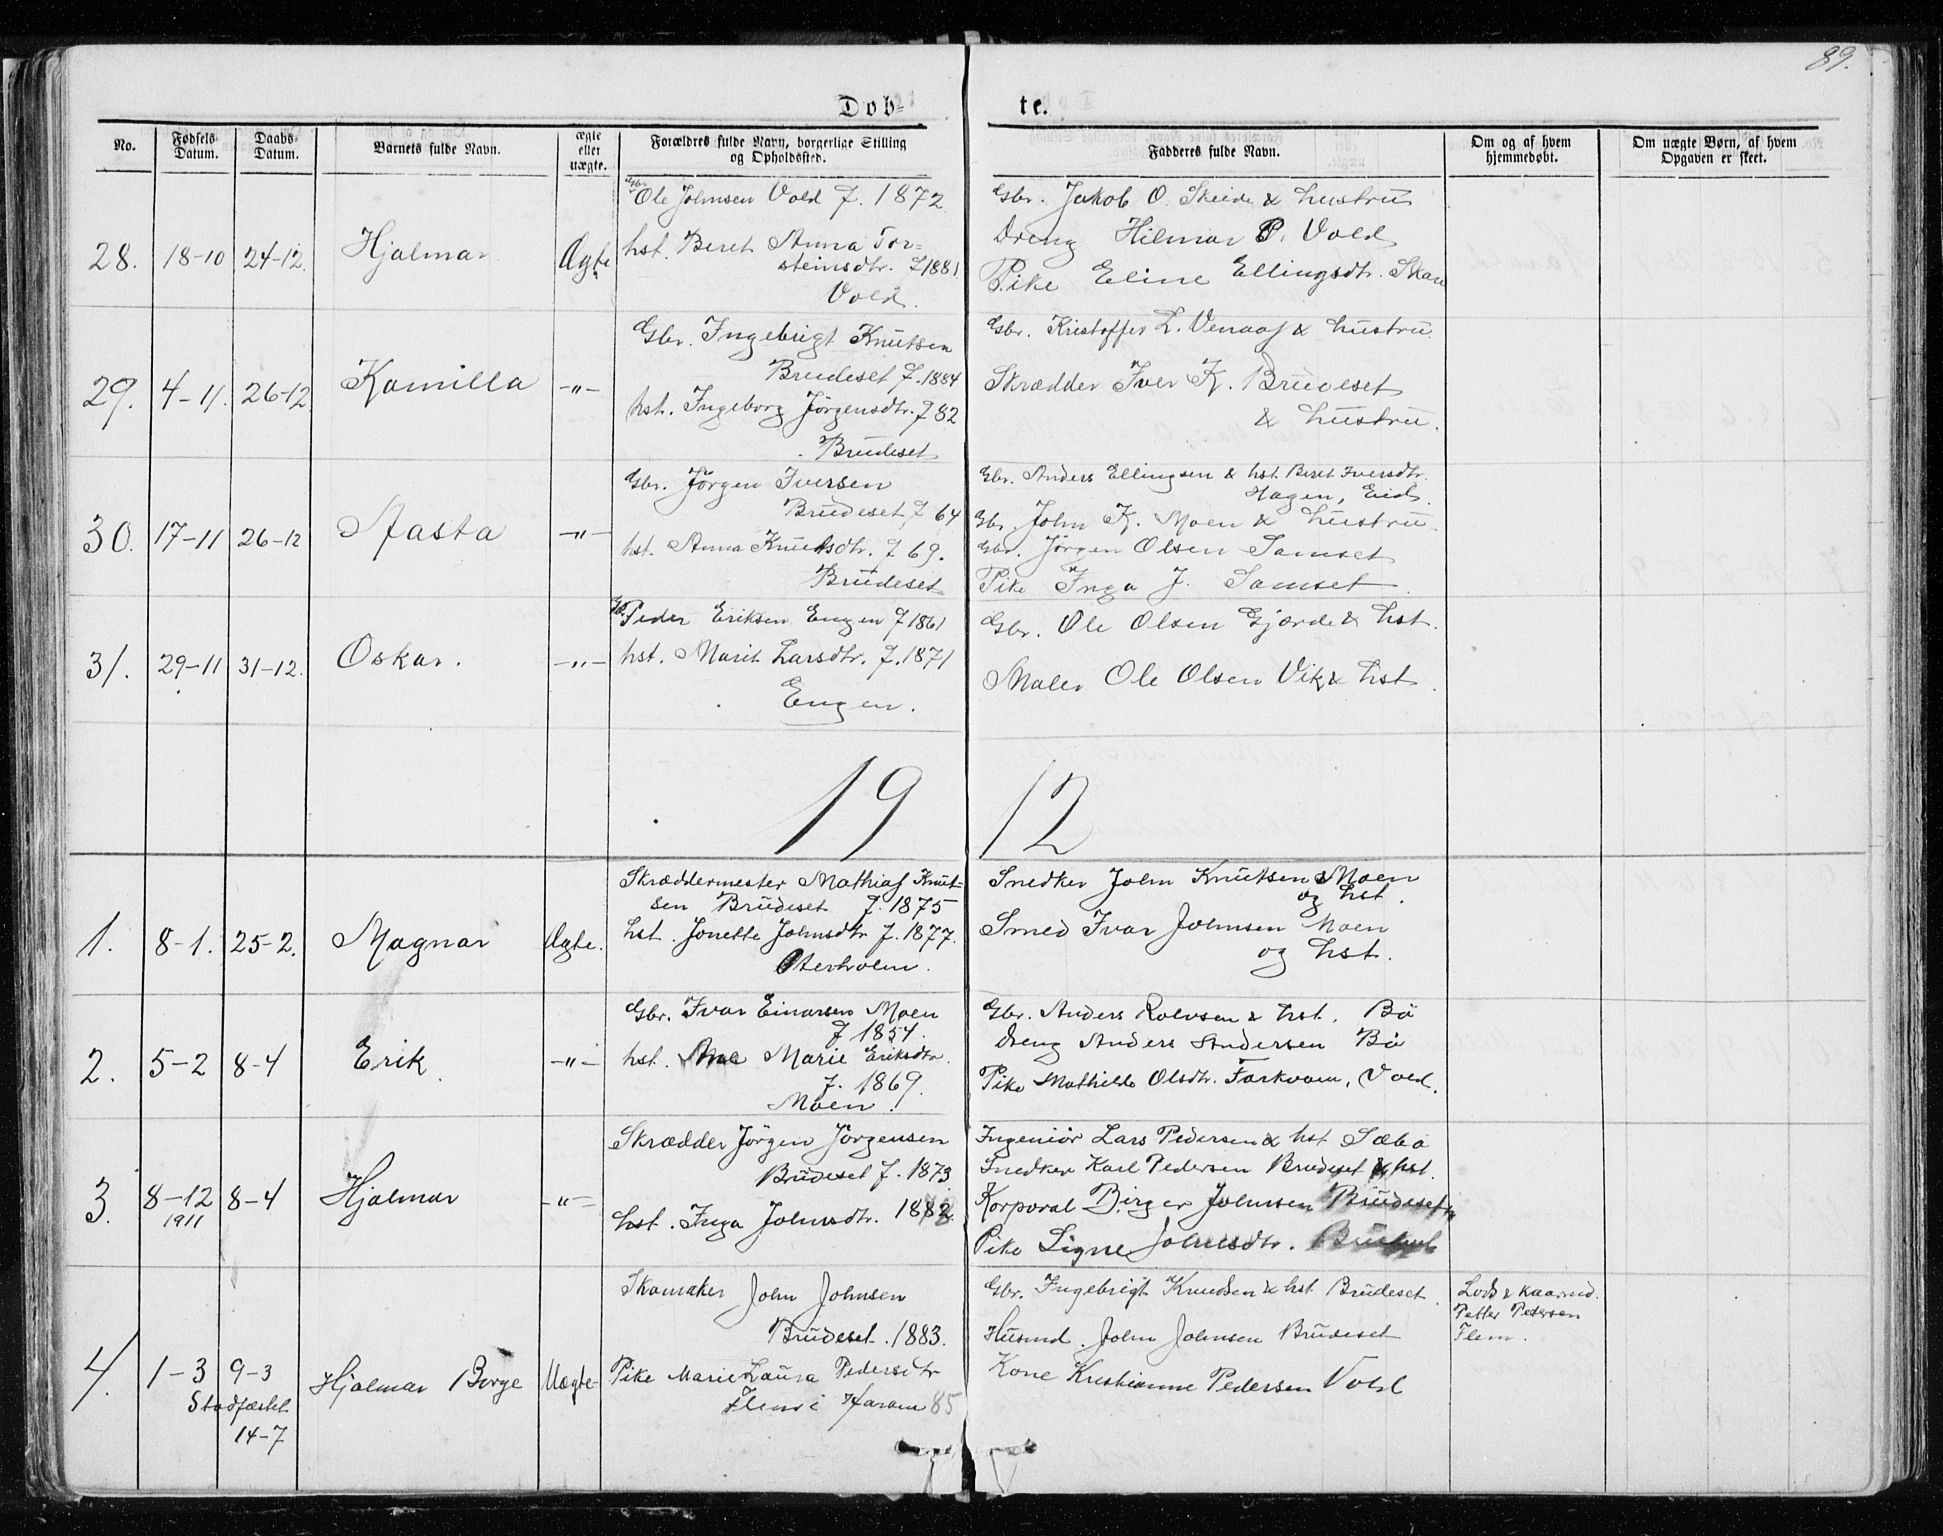 89.
Døb-
te.
No.
Fødsels-
Datum.
Daabs-
Datum.
Barnets fulde Navn.
ægte
eller
uægte.
Forældres fulde Navn, borgerlige Stilling
og Opholdssted.
Fadderes fulde Navn.
Om og af hvem
hjemmedøbt.
Om uægte Børn, af hvem
Opgaven er skeet.
28.
18-10
24-12.
Hjalmar
Ægte
Gbr.
Ole Johnsen Vold f. 1872
hst. Beret Anna Tor=
steinsdtr. f 1881.
Vold.
Gbr. Jakob O. Skeide & hustru
Dreng Hilmar P. Vold
Pike Eline Ellingsdtr. Skare
29.
4-11.
26-12.
Kamilla
-"-
Gbr. Ingebrigt Knutsen
Brudeset f. 1884
hst. Ingeborg Jörgensdtr. f 82
Brudeset
Gbr. Kristoffer L. Venaas & hustru.
Skrædder Iver K. Brudeset
& hustru.
30.
17-11
26-12
Aasta
-"-
Gbr. Jörgen Iversen
Brudeset f 64
hst. Anna Knutsdtr. f 69.
Brudeset
Gbr. Anders Ellingsen & hst. Beret Iversdtr.
Hagen, Eid.
Gbr. John K. Moen & hustru.
Gbr. Jörgen Olsen Samset
Pike Inga J. Samset
31.
29-11
31-12.
Oskar.
-"-
Gbr. Peder Eriksen Engen f 1861
hst. Marit Larsdtr. f. 1871
Engen.
Gbr. Ole Olsen Gjærde & hst.
Maler Ole Olsen Vik & hst.
1912
1.
8-1.
25-2.
Magnar
Ægte.
Skræddermester Mathias Knut=
sen Brudeset f. 1875
hst. Jonette Johnsdtr f. 1877.
Østerholm.
Snedker John Knutsen Moen
og hst.
Smed Ivar Johnsen Moen
og hst.
2.
5-2
8-4
Erik
-"-
Gbr. Ivar Einarsen Moen
f 1854.
hst. Marie Eriksdtr.
f. 1869.
Moen.
Gbr. Anders Rolvsen & hst. Bö
Dreng Anders Andersen Bö
Pike Mathilde Olsdtr. Farkvam, Vold.
3.
8-12
1911
8-4
Hjalmar
-"-
Skrædder Jörgen Jörgensen
Brudeset f. 1873.
hst. Inga Johnsdtr. 1882
Ingeniör Lars Pedersen & hst Sæbø
Snedker Karl Pedersen Brudeset & hst.
Korporal Birger Johnsen Brudeset
Pike Signe Johnsdtr. Brudeset
4.
1-3
9-3
Stadfæstet
14-7
Hjalmar Borge
Uægte
Skomaker John Johnsen
Brudeset. 1883.
Pike Marie Laura Pedersdtr
Flem i Haram 85
Gbr. Ingebrigt Knudsen & hst Brudeset
Husmd. John Johnsen Brudeset
Kone Kristianne Pedersen Vold
Lods & kaarmd.
Petter Pedersen
Flem.